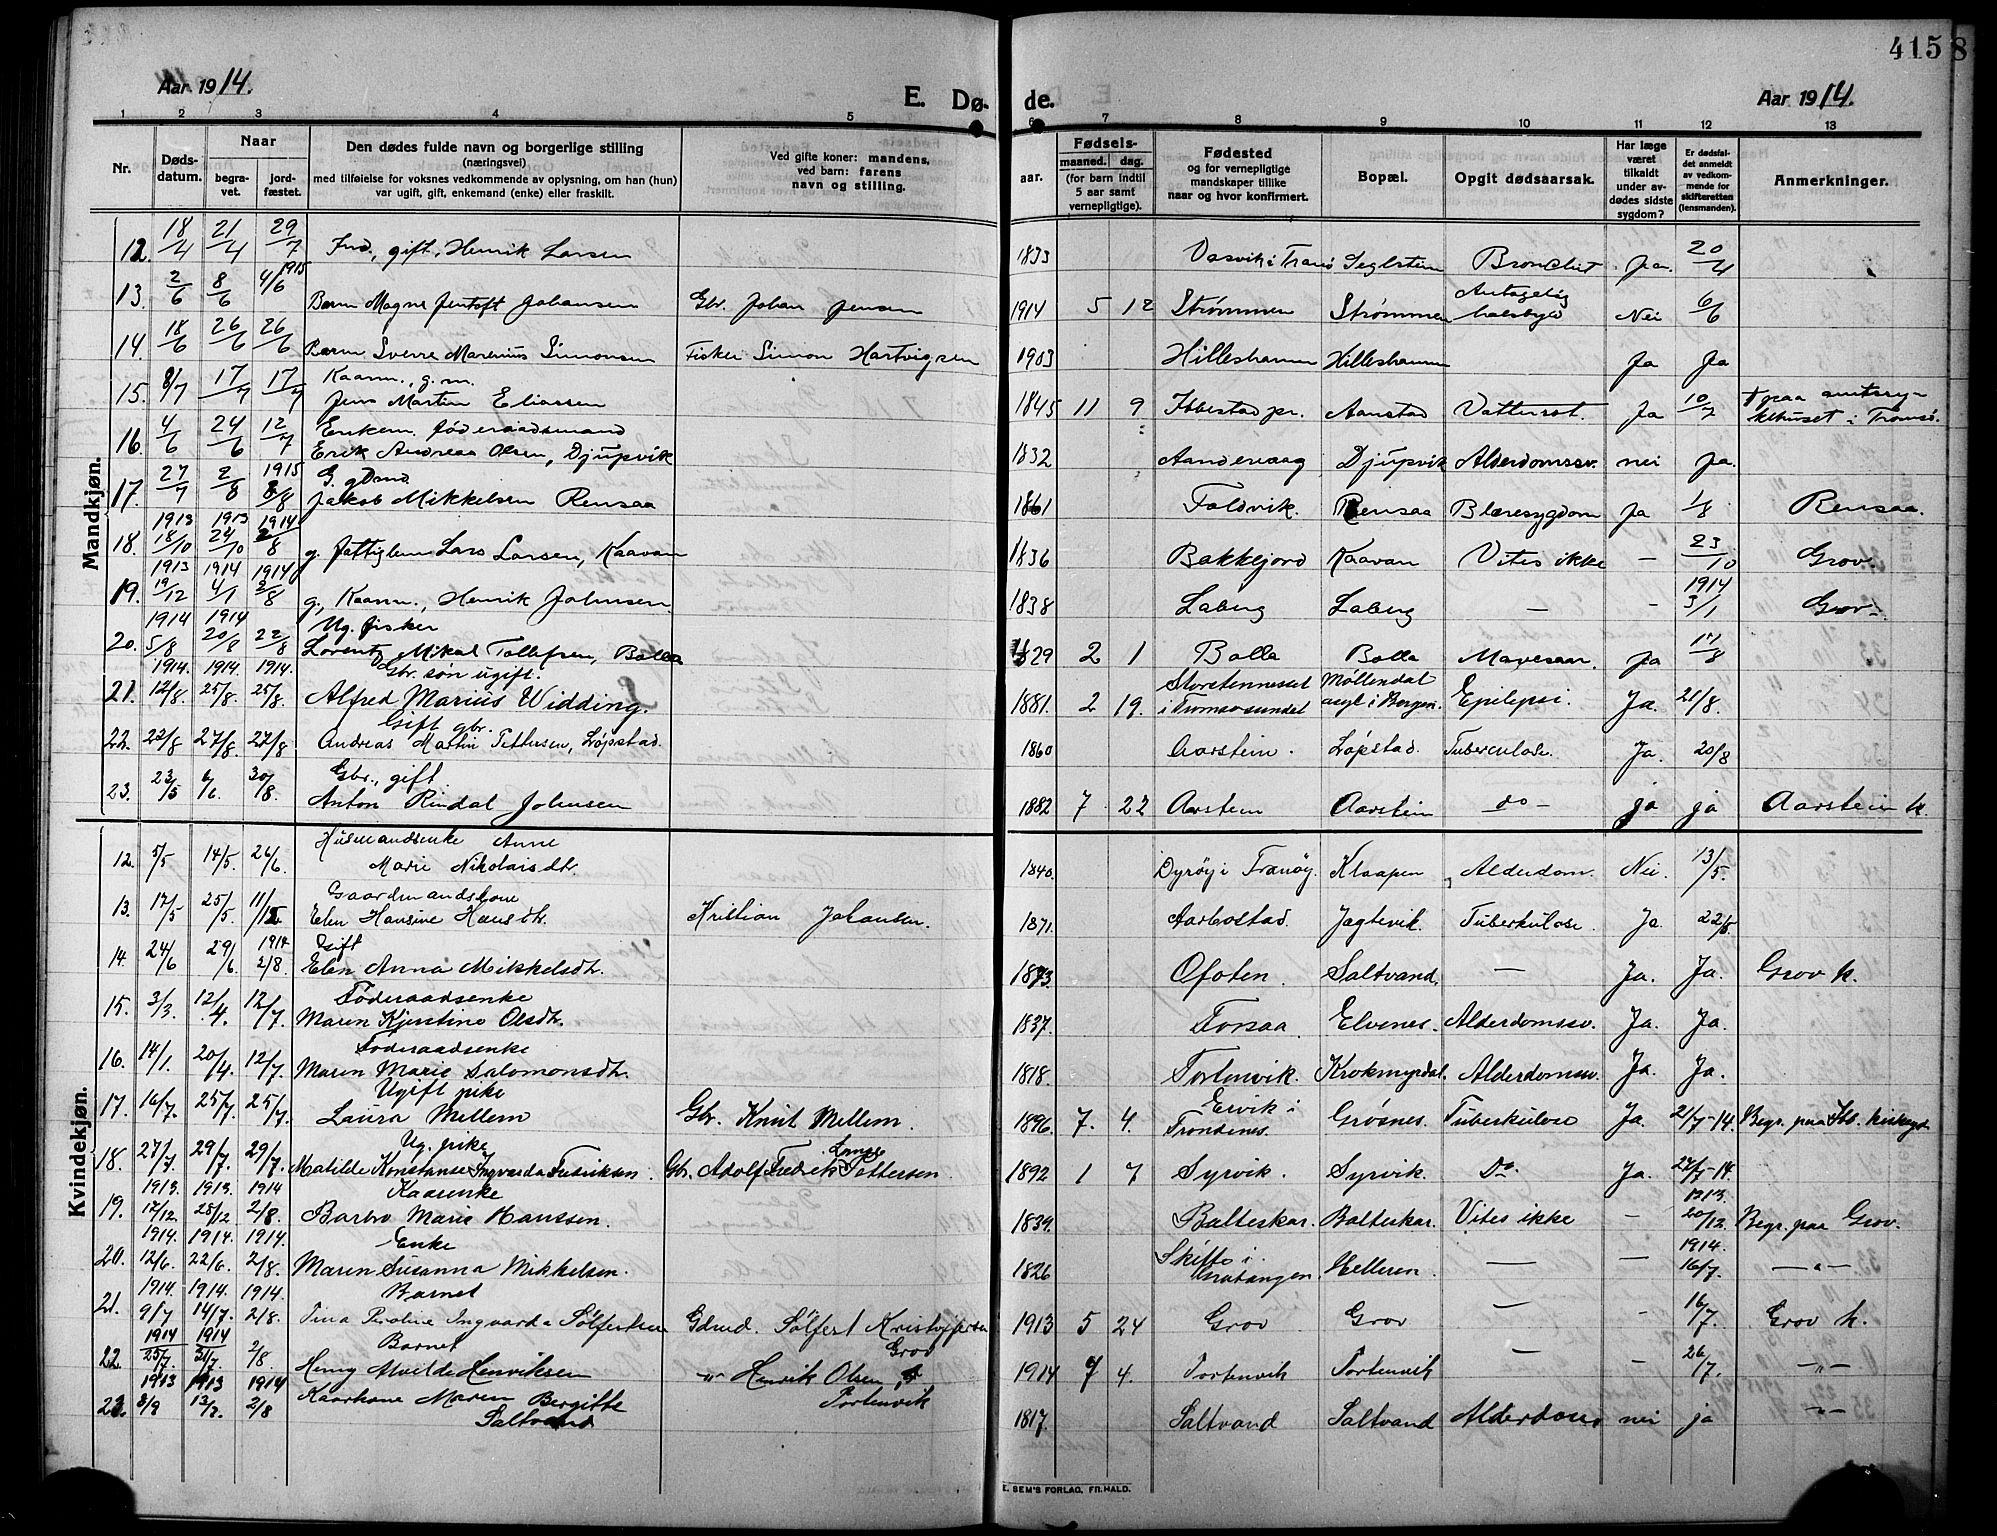 415 8
Aar 1914.
E. Dø- de.
Aar 1914.
1 2 3 4 5 6 7 8 9 10 11 12 13
Nr.
Døds-datum.
Naar
begra-vet.
jord-fæstet.
Den dødes fulde navn og borgerlige stilling
(næringsvei)
med tilføielse for voksnes vedkommende av oplysning, om han (hun)
var ugift, gift, enkemand (enke) eller fraskilt.
Ved gifte koner: mandens,
ved barn: farens
navn og stilling.
Fødsels-
aar. maaned. dag.
(for barn indtil
5 aar samt
vernepligtige).
Fødested
og for vernepligtige
mandskaper tillike
naar og hvor konfirmert.
Bopæl.
Opgit dødsaarsak.
Har læge
været
tilkaldt
under av-
dødes sidste
sygdom?
Er dødsfal-
det anmeldt
av vedkom-
mende for
skifteretten
(lensmanden).
Anmerkninger.
Mandkjøn.
12. 18/4 21/4 29/7 Ind., gift, Henrik Larsen 1833 Vasvik i Tranø Seglstein Bronchit ja 20/4
13. 2/6 8/6 1915 4/6 Barn Magne Jentoft Johansen Gbr. Johan Jensen 1914 5 12 Strømmen Strømmen Antagelig halsbyld Nei 6/6
14. 18/6 26/6 26/6 Barn Sverre Marenius Simonsen Fisker Simon Hartvigsen 1903 Hilleshamn Hilleshamn Ja Ja
15. 8/7 17/7 17/7 Kaarm., g.m.
Jens Martin Eliassen 1845 11 9 Ibbestad pr. Aanstad Vattersot. Ja 10/7 † paa amtssy-
kehuset i Tromsø.
16. 4/6 24/6 12/7 Enkem. føderaadsmand
Erik Andreas Olsen, Djupvik 1832 Aandervaag Djupvik Alderdomssv. nei ja.
17. 27/7 2/8 1915 8/8 G. gbmd.
Jakob Mikkelsen Rensaa 1861 Foldvik. Rensaa Blæresygdom Ja 1/8 Rensaa.
18. 1913 18/10 1913 24/10 1914 2/8 g. fattiglem Lars Larsen, Kaavan 1836 Bakkejord Kaavan Vites ikke — 23/10 Grov
19. 1913 19/12 1914 4/1 1914 2/8 g., Kaarm., Henrik Johnsen 1838 Laberg Laberg — — 1914 3/1 Grov
20. 1914 5/8 1914 20/8 22/8 Ug. fisker
Lorentz Mikal Tollefsen, Bolla 1829 2 1 Bolla Bolla Mavesaar. Ja 17/8
21. 1914. 12/8. 1914. 25/8. 1914. 25/8. Gbr. søn ugift.
Alfred Marius Widding. 1881. 2 19. Storstennesset Møllendal
asyl i Bergen. Epilepsi. Ja. 21/8.
22. 22/8 27/8 27/8 Gift gbr.
Andreas Martin Pettersen, Løpstad. 1860 Aarstein. Løpstad. Tuberculose. Ja. 20/8
23. 23/5 6/6. 30/8. Gbr., gift
Anton Rindal Johnsen 1882 7 22 Aarstein Aarstein do — ja ja Aarstein k.
Kvindekjøn.
12. 5/5 14/5. 26/6. Husmandsenke Anne
Marie Nikolaisdtr. 1840. Dyrøy i Tranøy. Klaapen Alderdom. Nei. 13/5.
13. 17/5 25/5. 11/ Gaardmandskone
Elen Hansine Hansdtr. Kristian Johansen. 1871. Aarbostad. Jagtevik. Tuberkulose. Ja. 22/5.
14. 24/6 29/6. 1914. 2/8. Gift
Elen Anna Mikkelsdtr. 1873. Ofoten. Saltvand. — Ja. Ja. Grov k.
15. 3/3. 12/4. 12/7. Føderaadsenke
Maren Kjerstine Olsdtr. 1837. Forsaa. Elvenes. Alderdomssv. Ja. Ja.
16. 14/1. 20/4. 12/7. Føderaadsenke
Maren Marie Salomonsdtr. 1818. Tortenvik. Krokmyrdal. Alderdomssv. Ja. Ja.
17. 16/7. 25/7. 25/7. Ugift pike
Laura Mellem Gbr. Knut Mellem. 1896. 7. 4. Ervik i
Trondenes. Grøsnes. Tuberkulose Ja. 21/7-14. Begr. paa Ib. kirkegd.
18. 27/7. 29/7. 29/7. Ug. pike
Matilde Konstanse Ingvarda Fredriksen. Gbr. Adolf Fredrik Pettersen 1892 1 7 Syrvik. Syrvik. Do. Ja. 27/7-14.
19. 1913. 17/12. 1913. 28/12 1914 2/8. Kaarenke
Barbro Marie Hanssen. 1839. Balteskar. Balteskar. Vites ikke — 1913. 20/12. Begr. paa Grov.
20. 1914. 12/6. 1914. 22/6. 1914. 2/8. Enke
Maren Susanna Mikkelsen. 1826 Skifte i
Gratangen. Helleren. — — 1914. 16/7. —"—
21. 1914. 9/7 1914. 14/7. 1914. 2/8. Barnet
Tina Peroline Ingvarda Sølfertsen Gdmd. Sølfert Kristoffersen
Grov 1913 5 24 Grov Grov — — 16/7. Grov k.
22. 1914 25/7. 1914 31/7. 2/8. Barnet
Henny Alvilde Henriksen —"— Henrik Olsen,
Tortenvik 1914 7 4. Tortenvik Tortenvik — — 26/7. —"—
23. 1913 8/9 1913 13/9. 1914 2/8 Kaarkone Maren Bergitte
Saltvand 1817. Saltvand Saltvand Alderdoms nei ja —"—
E. SEM'S FORLAG, FR.HALD.